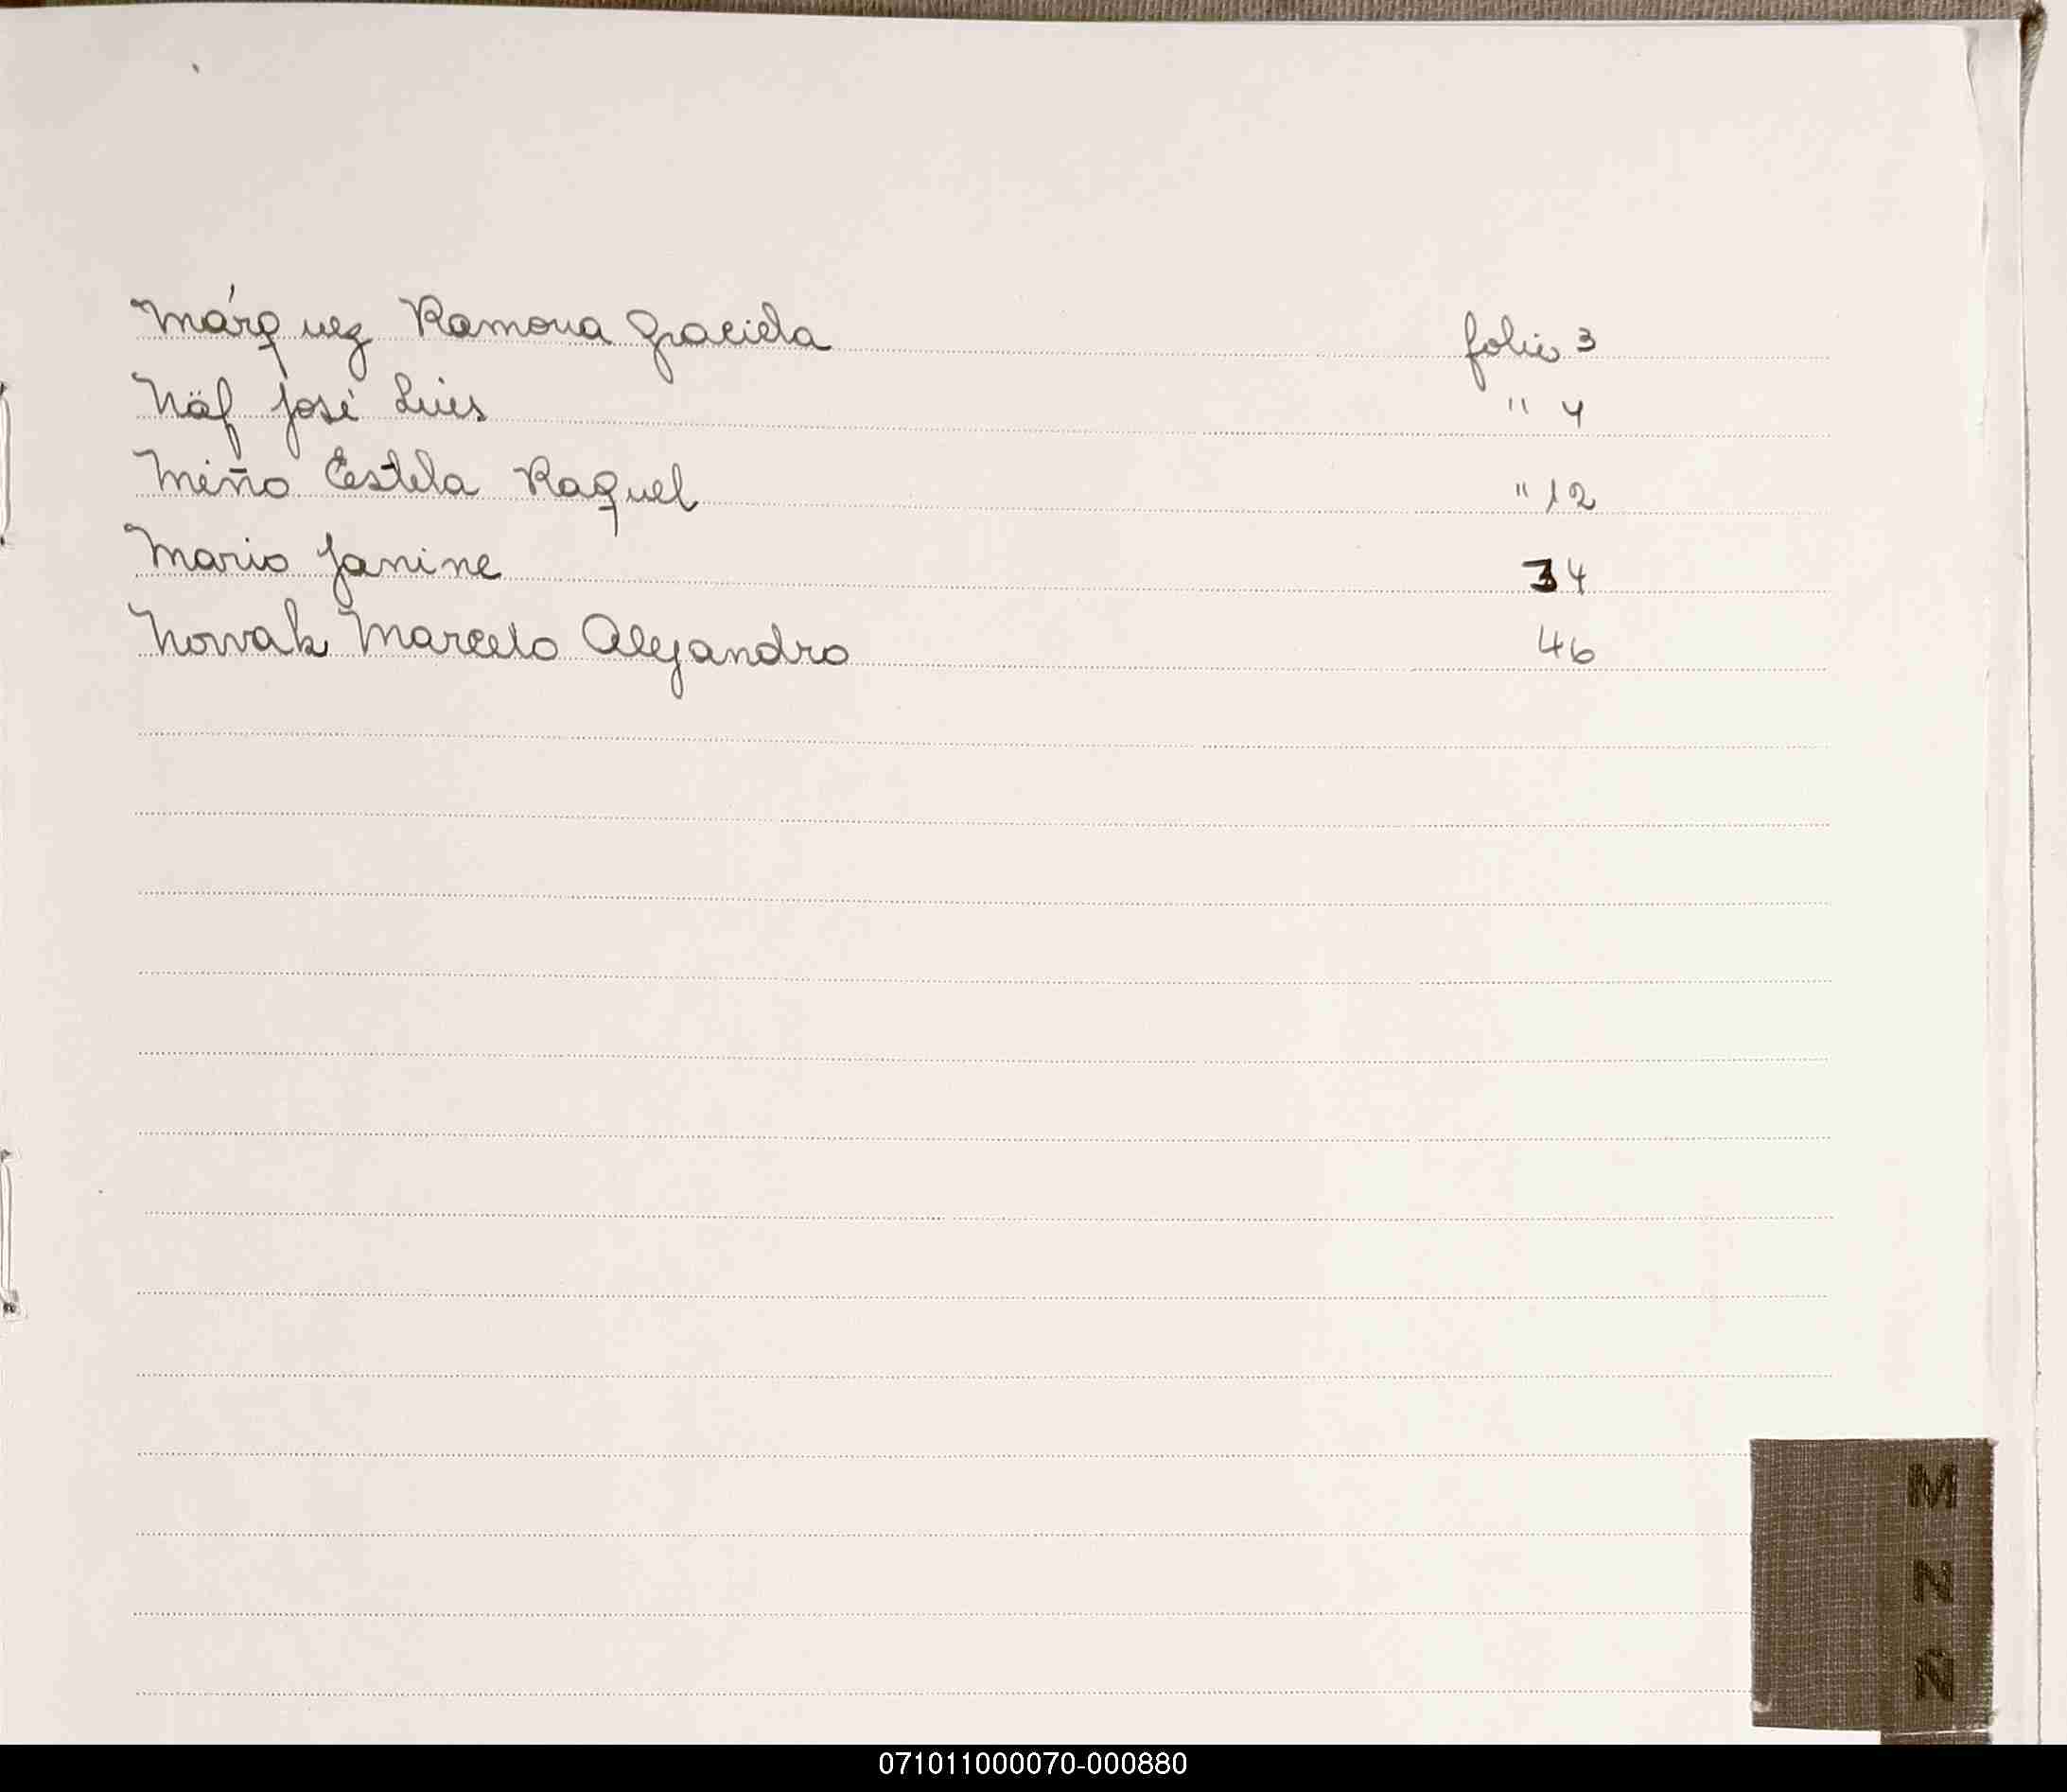 Márquez Ramona Graciela folio 3
Näf José Luis " 4
Miño Estela Raquel " 12
Mario Janine 34
Nowak Marcelo Alejandro 46
M
N
Ñ
071011000070-000880